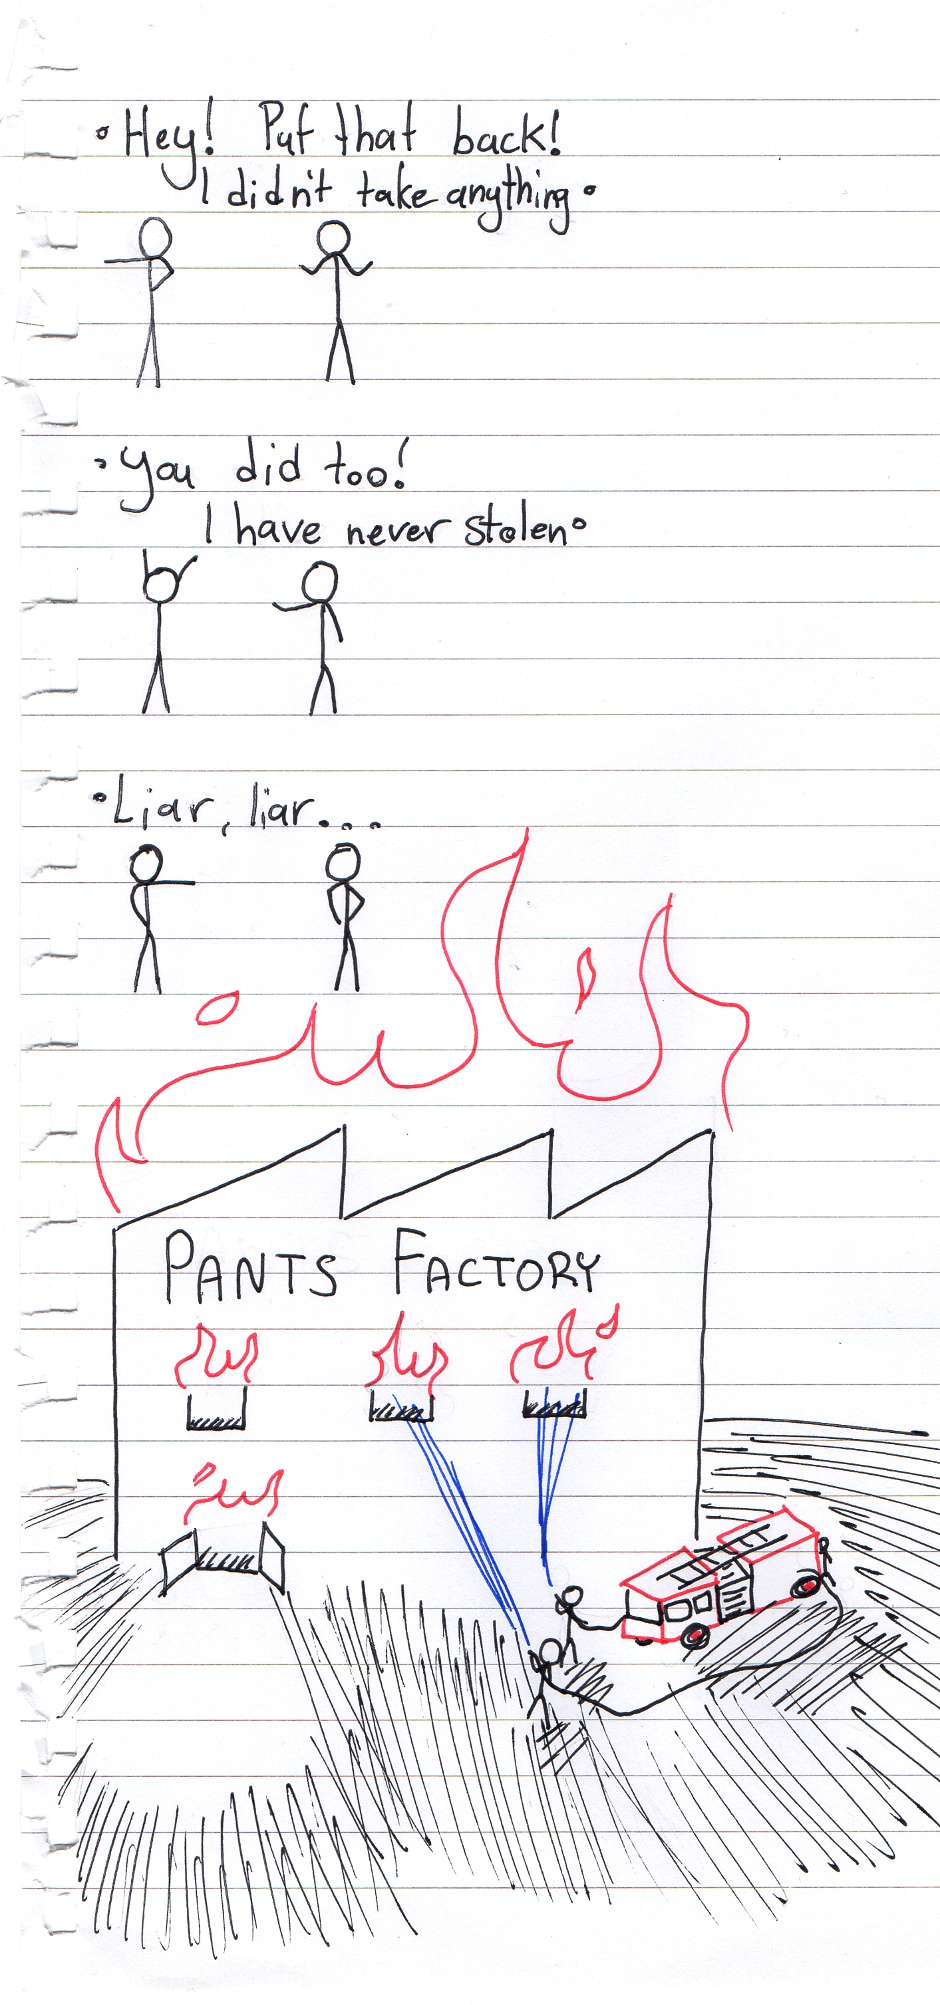 Hey! Put that back!
I didn't take anything.
You did too!
I have never stolen.
Liar, liar...
PANTS FACTORY